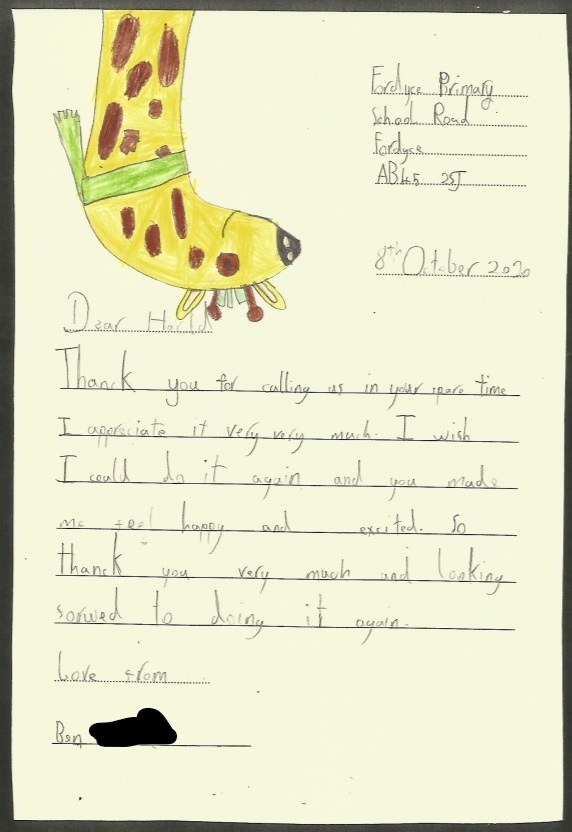 Fordyce Primary
School Road
Fordyce
AB45 2SJ
8th October 2020
Dear Harld
Thanck you for calling us in your spare time
I appreciate it very very much. I wish
I could do it again and you made
me feel happy and excited. So
thanck you very much and looking
forwed to doing it again.
Love from
Ben